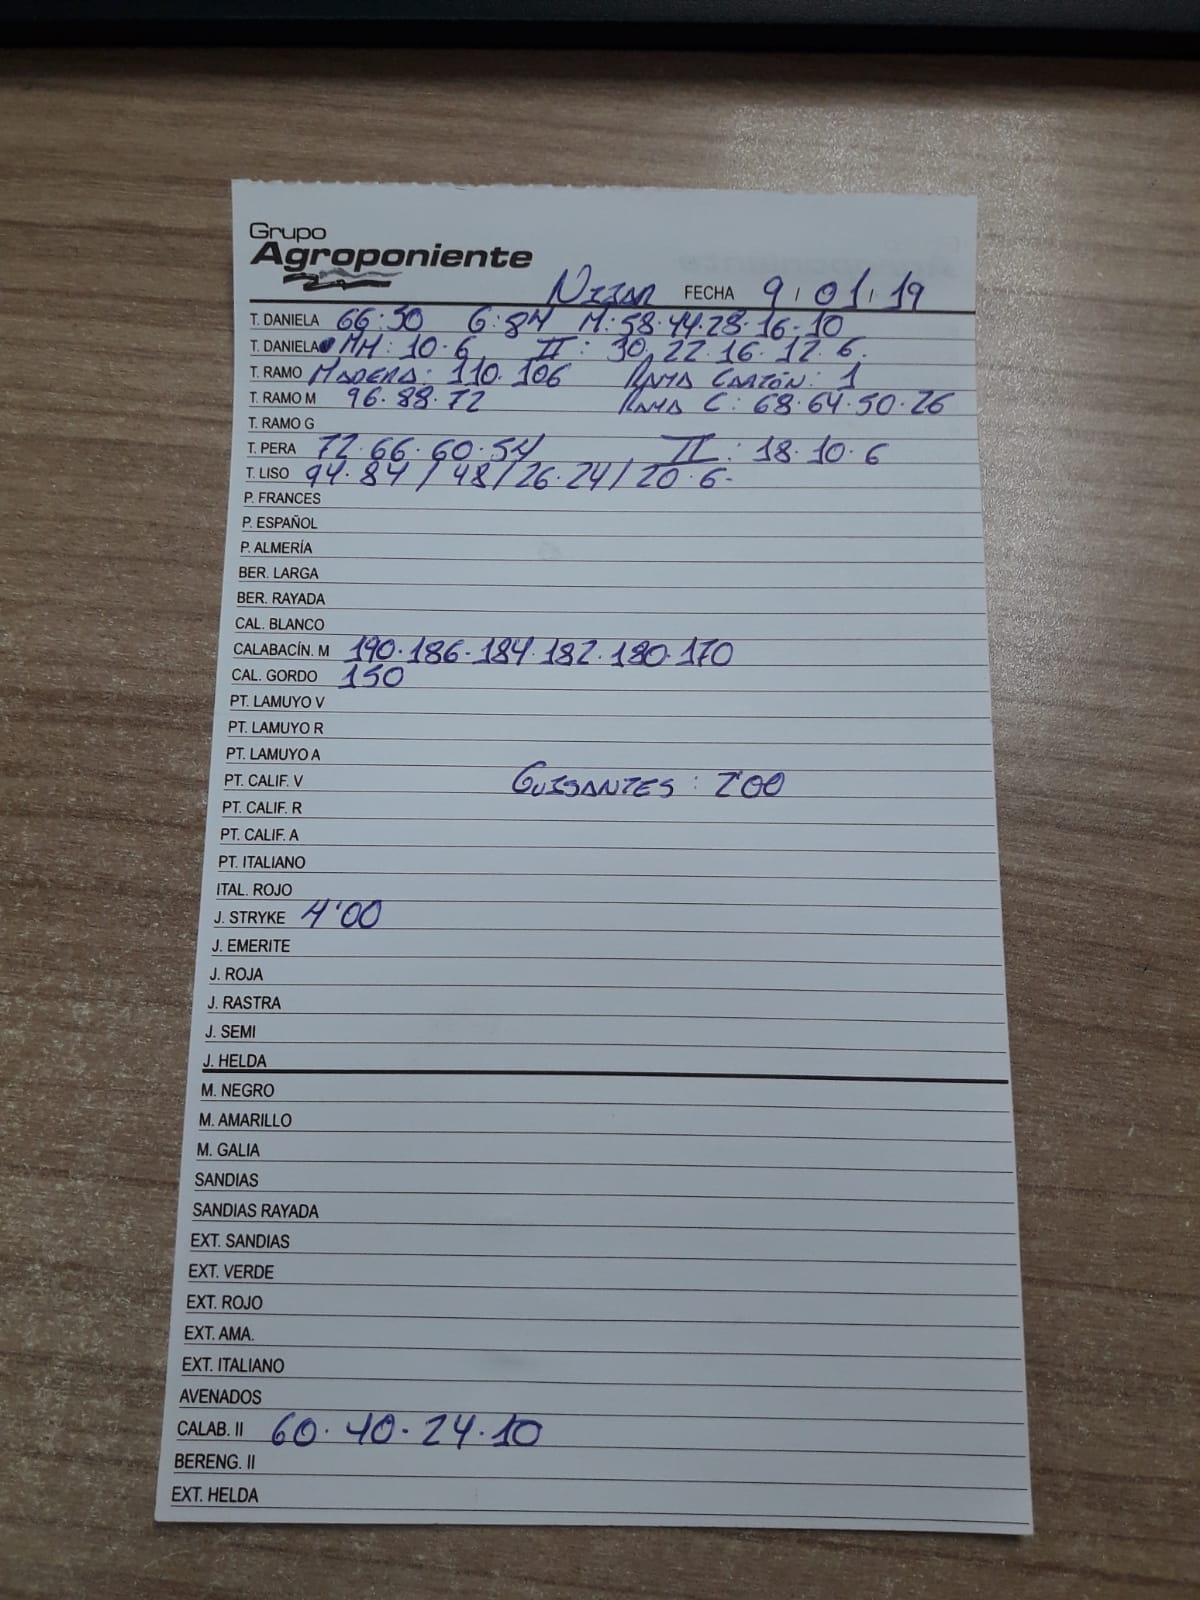 Grupo
Agroponiente
NIJAR FECHA 9/01/19
T. DANIELA 66:50 G:84 M:58·44·28·16·10
T. DANIELA MM:10·6 II: 30.22.16.12.6.
T. RAMO MADERA: 110.106 RAMA CARTÓN: 1
T. RAMO M 96.88.72 RAMA C: 68·64·50·26
T. RAMO G
T. PERA 72.66.60.54 II: 18·10·6
T. LISO 94·84/48/26·24/20·6-
P. FRANCES
P. ESPAÑOL
P. ALMERÍA
BER. LARGA
BER. RAYADA
CAL. BLANCO
CALABACÍN. M 190·186·184·182·180·170
CAL. GORDO 150
PT. LAMUYO V
PT. LAMUYO R
PT. LAMUYO A
PT. CALIF. V GUISANTES: 2'00
PT. CALIF. R
PT. CALIF. A
PT. ITALIANO
ITAL. ROJO
J. STRYKE 4'00
J. EMERITE
J. ROJA
J. RASTRA
J. SEMI
J. HELDA
M. NEGRO
M. AMARILLO
M. GALIA
SANDIAS
SANDIAS RAYADA
EXT. SANDIAS
EXT. VERDE
EXT. ROJO
EXT. AMA.
EXT. ITALIANO
AVENADOS
CALAB. II 60·40·24·10
BERENG. II
EXT. HELDA